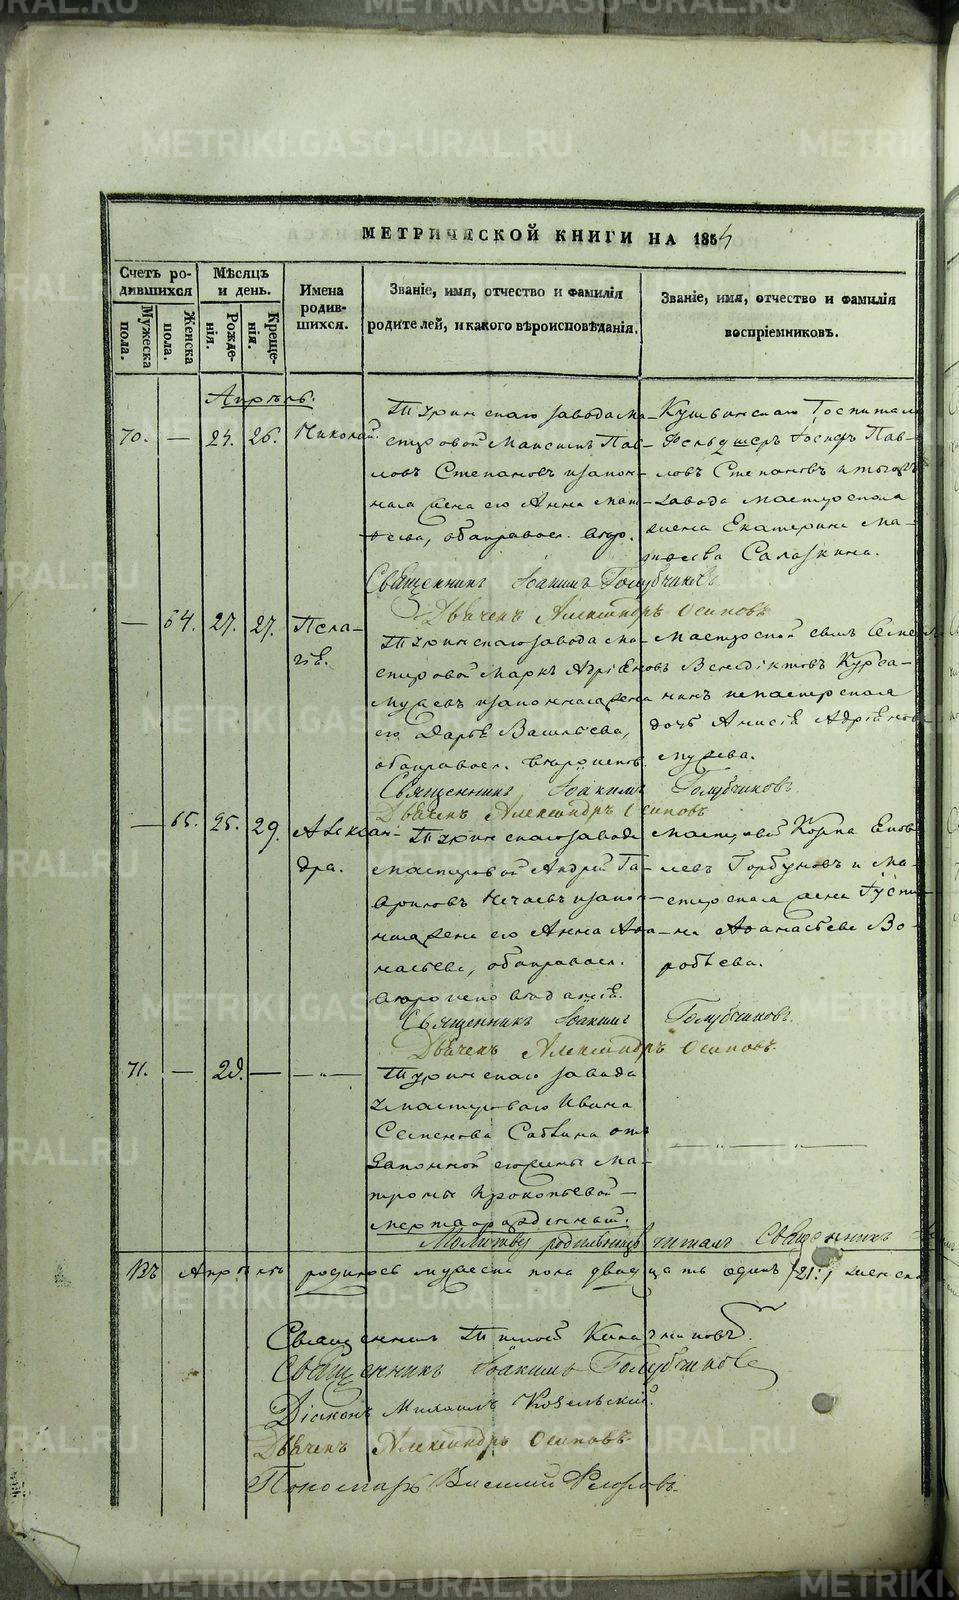 METRIKI.GASO-URAL.RU
МЕТРИЧЕСКОЙ КНИГИ НА 1854
Счетъ ро-
дившихся
Мужеска
пола.
Женска
пола.
Мѣсяцъ
и день.
Рожде-
нія.
Креще-
нія.
Имена
родив-
шихся.
Званіе, имя, отчество и фамилія
родителей, и какого вѣроисповѣданія.
Званіе, имя, отчество и фамилія
воспріемниковъ.
Апрѣль.
70. — 24. 26. Николай.
Туринскаго завода ма-
стеровой Максимъ Пав-
ловъ Степановъ и закон-
ная жена его Анна Мат-
ѳеева, оба правосл.
Кушвинскаго Госпиталя
Фельдшеръ Іосифъ Пав-
ловъ Степановъ и
завода мастерская
жена Екатерина Ма-
Салазкина.
Священникъ Іоакимъ Голубчиковъ
Дьячекъ Александръ Осиповъ
— 64. 27. 27. Пела-
гія.
Туринскаго завода ма-
стеровой Маркъ Адріановъ
и законная жена
его Дарья Васильева,
оба правосл.
Мастерской сынъ
Венедиктовъ Курба-
и мастерская
дочь Анисія Адріанова
Священникъ Іоакимъ Голубчиковъ
Дьячекъ Александръ Осиповъ
— 65. 25. 29. Алексан-
дра.
Туринскаго завода
мастеровой Андрей Га-
вриловъ Нечаевъ и закон-
ная жена его Анна Аѳа-
насьева, оба правосл.
вѣроисповѣданія.
Мастеровой Карпъ
Горбуновъ и ма-
стерская жена Іусти-
на Аѳанасьева Во-
робьева.
Священникъ Іоакимъ Голубчиковъ.
Дьячекъ Александръ Осиповъ.
71. — 28. — — „ —
Туринскаго завода
у мастероваго Ивана
Семенова Савина отъ
законной жены Ма-
троны Прокопьевой —
мертворожденный.
— „ — „ —
Молитву родильницѣ читалъ Священникъ
Въ Апрѣлѣ родилось мужеска пола двадцать одинъ /21:/ женска
Священникъ
Священникъ Іоакимъ Голубчиковъ
Діаконъ Михаилъ Козельскій.
Дьячекъ Александръ Осиповъ
Пономарь Василий Флоровъ.
METRIKI.GASO-URAL.RU